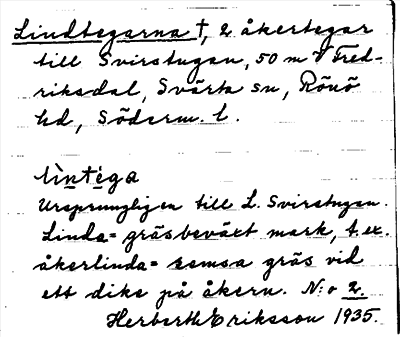 Lindtegarna †, 2 åkertegar
till Svirstugan, 50 m V Fred-
riksdal, Svärta sn, Rönö
hd, Söderm. l.
lìntéga
Ursprungligen till L. Svirstugan.
Linda = gräsbeväxt mark, t. ex.
åkerlinda = remsa gräs vid
ett dike på åkern. N:o 2.
Herbert Eriksson 1935.